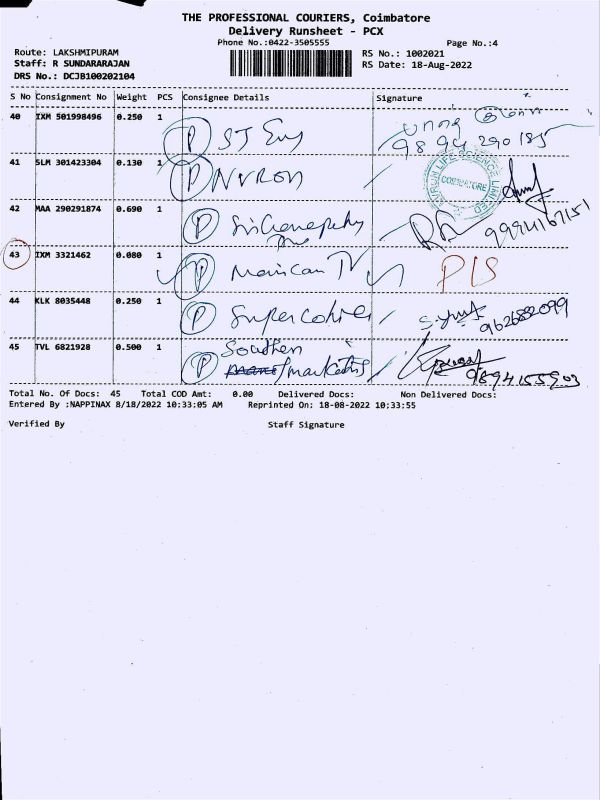 THE PROFESSIONAL COURIERS, Coimbatore
Delivery Runsheet - PCX
Phone No.:0422-3505555 Page No.:4
Route: LAKSHMIPURAM RS No.: 1002021
Staff: R SUNDARARAJAN RS Date: 18-Aug-2022
DRS No.: DCJB100202104
S No Consignment No Weight PCS Consignee Details Signature
40 IXM 501998496 0.250 1 P ST Eng
9894290185
41 SLM 301423304 0.130 1 P NVRON COIMBATORE
42 MAA 290291874 0.690 1 P 9994167151
43 IXM 3321462 0.080 1 P TV PLS
44 KLK 8035448 0.250 1 P 962682099
45 TVL 6821928 0.500 1 P Southern
9894155903
Total No. Of Docs: 45 Total COD Amt: 0.00 Delivered Docs: Non Delivered Docs:
Entered By :NAPPINAX 8/18/2022 10:33:05 AM Reprinted On: 18-08-2022 10:33:55
Verified By Staff Signature